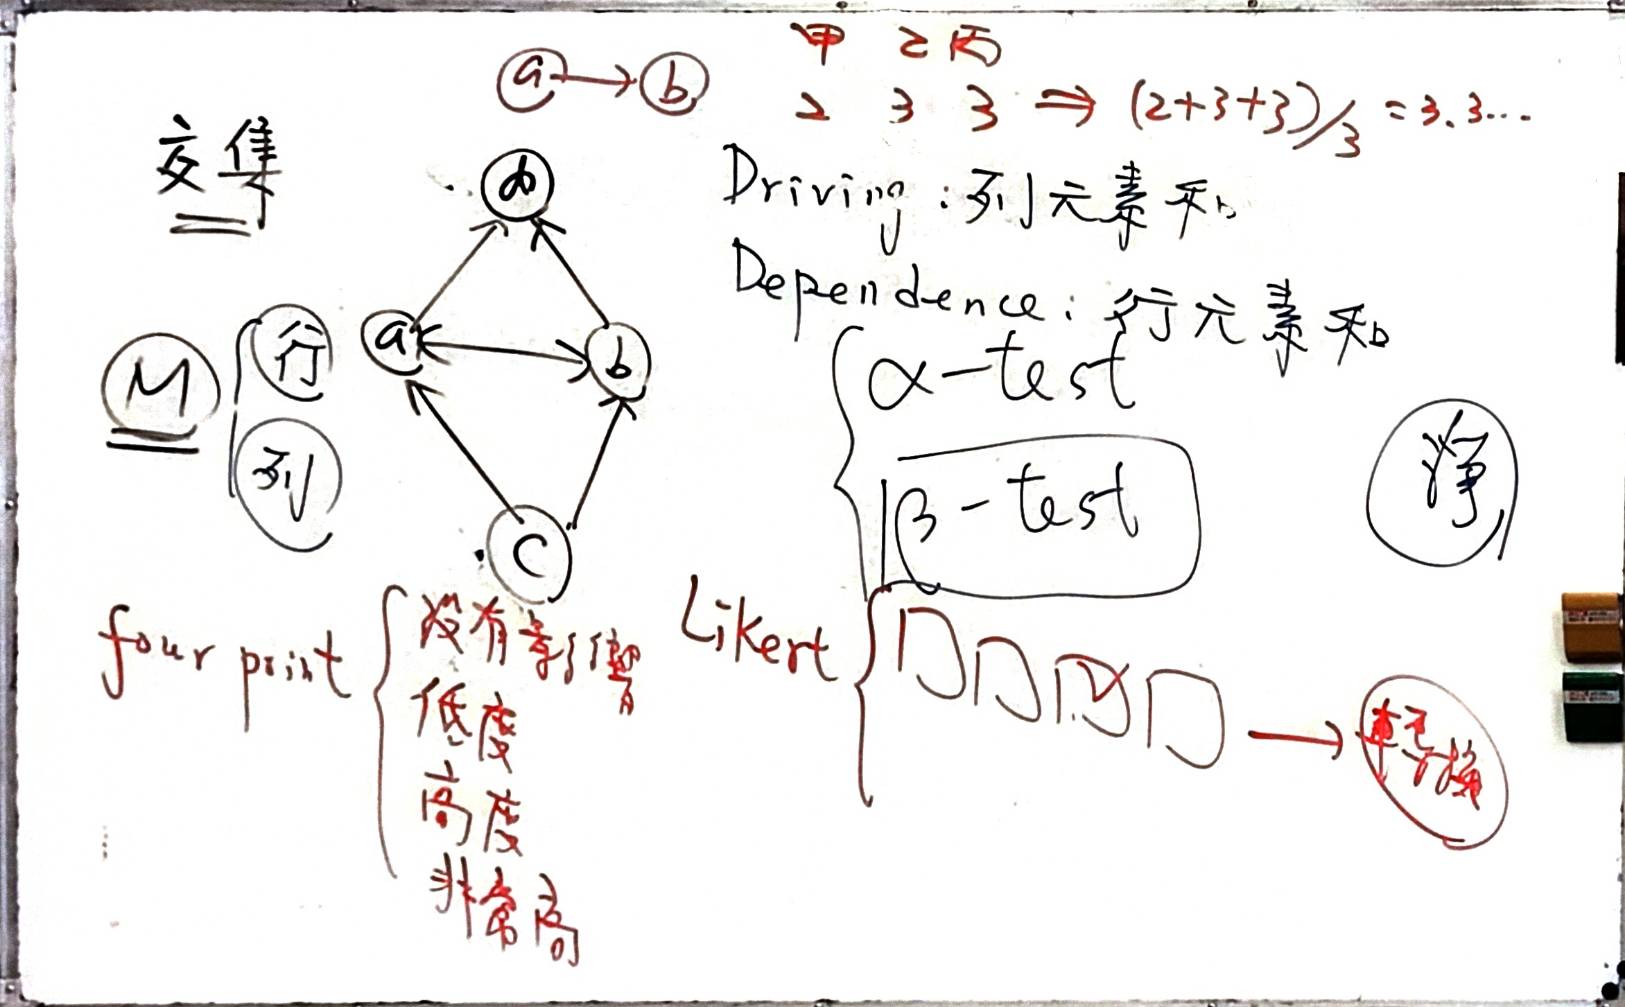 甲 乙 丙
a → b
2 3 3 ⇒ (2+3+3)/3 = 3.3...
交集
d
Driving : 列元素和
Dependence : 行元素和
M { 行
列
a
b
c
α-test
β-test
淨
four print { 没有影响
低度
高度
非常高
Likert
→ 轉換